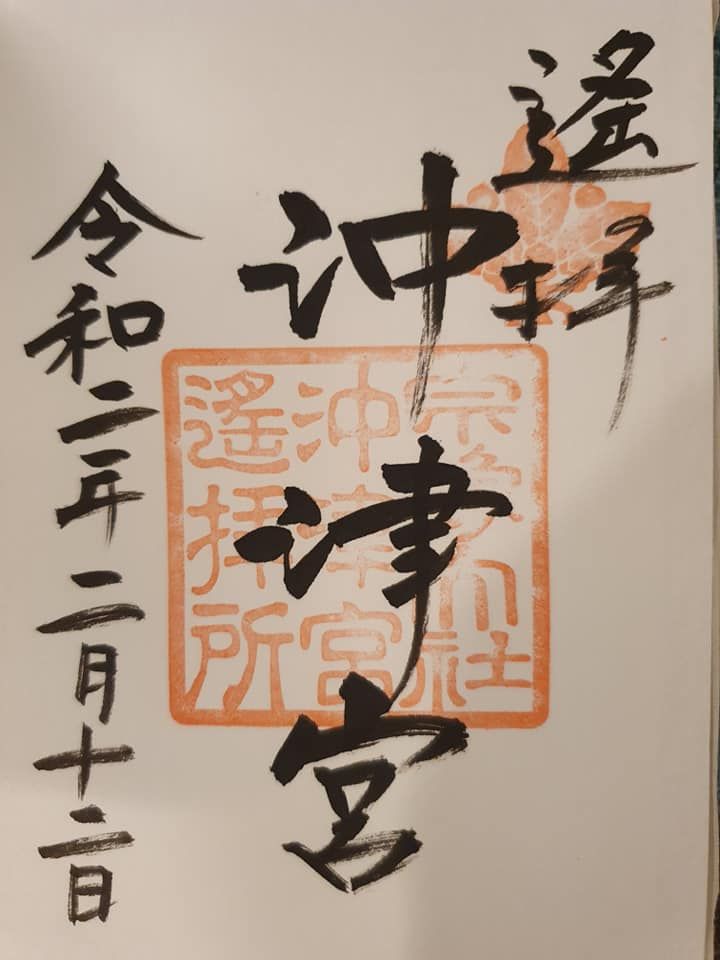 遥拝
沖津宮
令和二年二月十二日
宗像大社
沖津宮
遥拝所